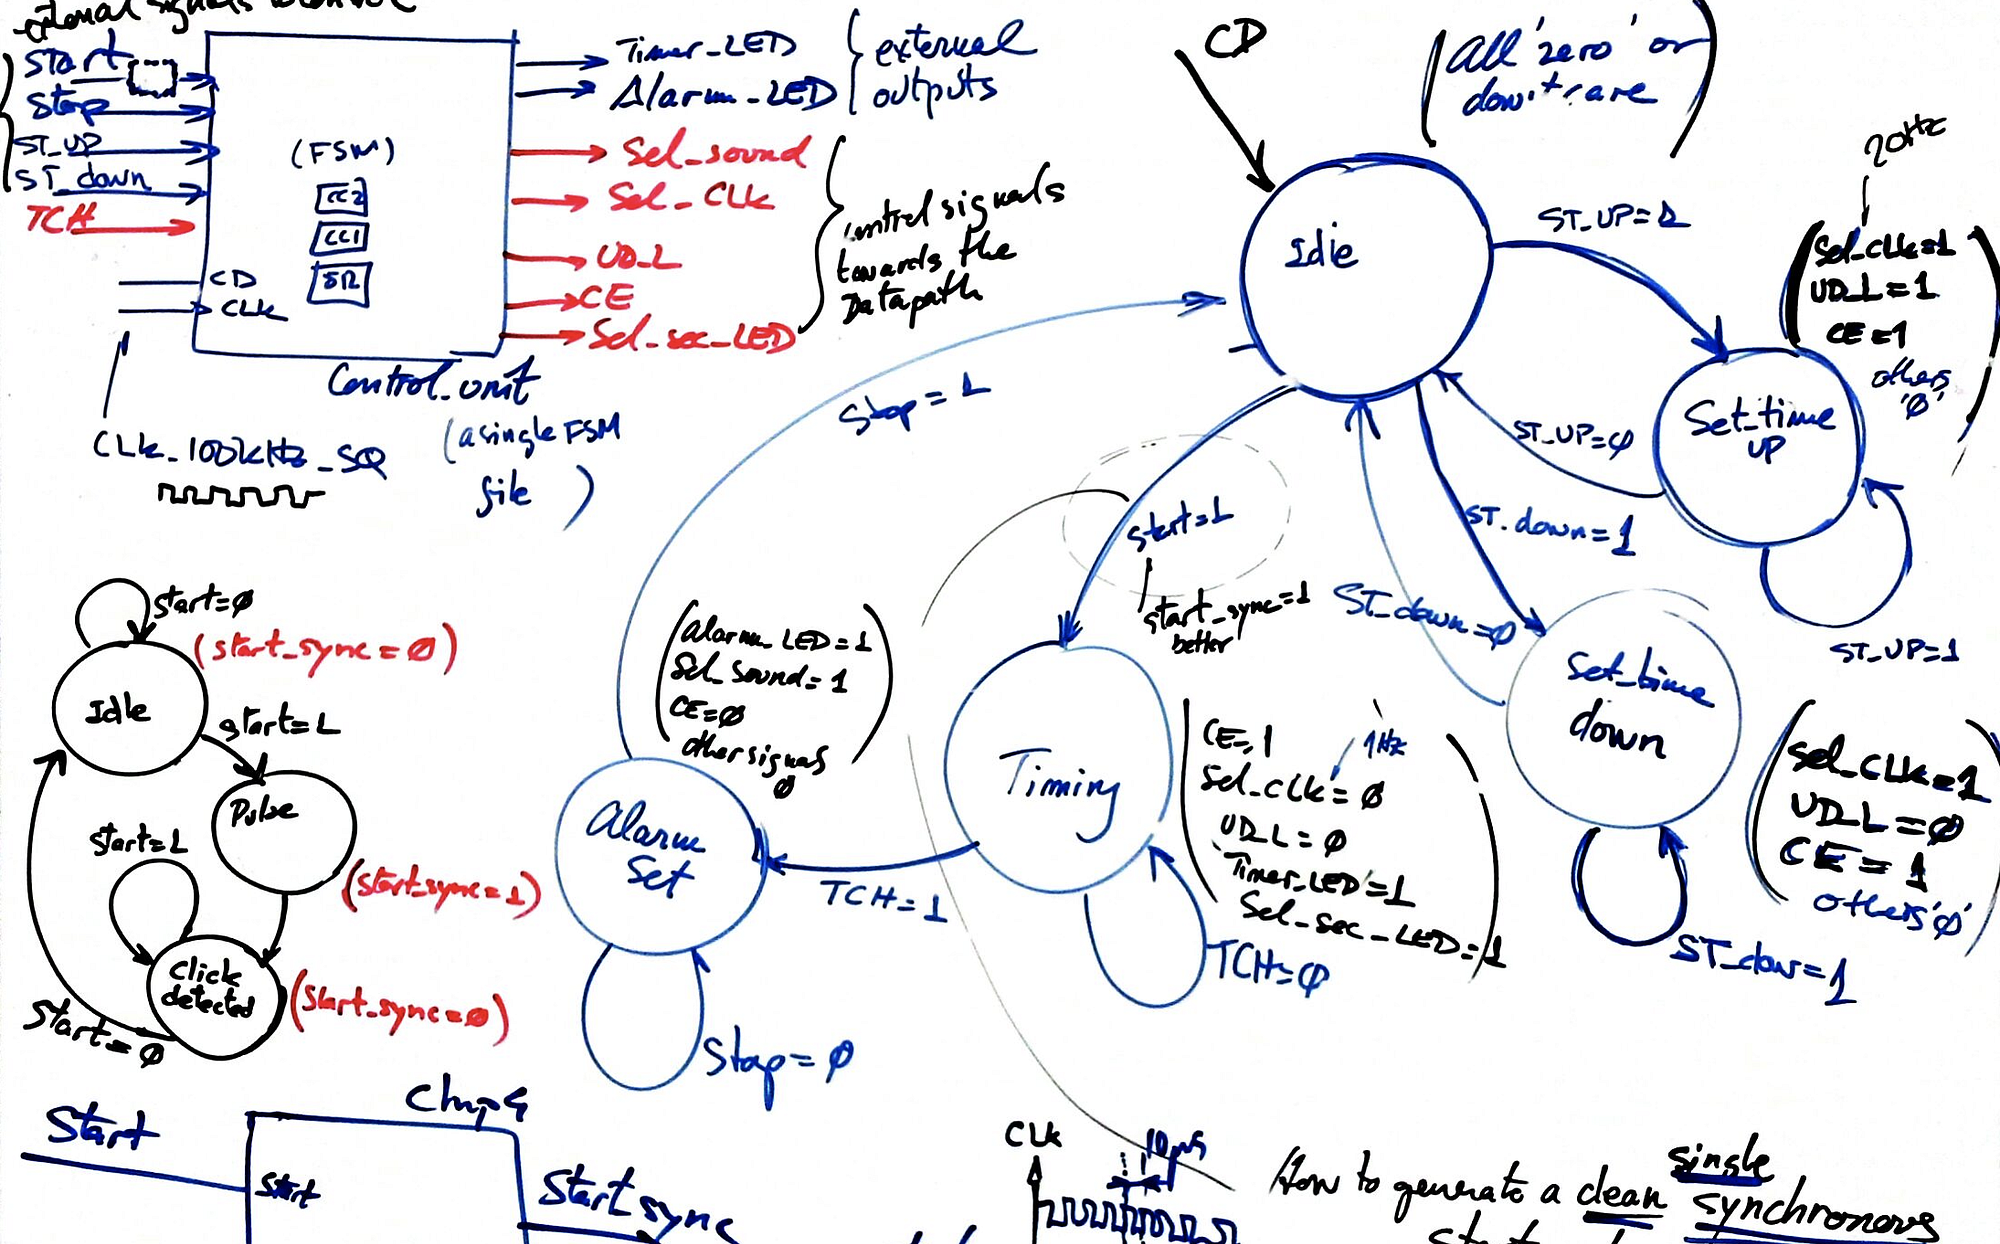 external signals
Start
Stop
ST_UP
ST_down
TCH
CD
CLK
(FSM)
CC2
CC1
SR
Timer_LED
Alarm_LED
external
outputs
Sel_sound
Sel_CLK
UD_L
CE
Sel_sec_LED
control signals
towards the
Datapath
Control_unit
(a single FSM
file )
CLK_100kHz_SQ
CD
(All 'zero' or
don't care)
Idle
ST_UP=1
20Hz
(Sel_CLK=1
UD_L=1
CE=1
others
'0')
Set_time
UP
ST_UP=0
ST_UP=1
Stop=1
ST_down=1
ST_down=0
Set_time
down
(Sel_CLK=1
UD_L=0
CE=1
others '0')
ST_dow=1
start=1
start_sync=1
better
Timing
(CE=1
1Hz
Sel_clk=0
UD_L=0
Timer_LED=1
Sel_sec_LED=1)
TCH=0
TCH=1
(Alarm_LED=1
Sel_sound=1
CE=0
other signals
0)
Alarm
Set
Stop=0
start=0
(start_sync=0)
Idle
start=1
Pulse
(start_sync=1)
start=1
Click
detected
(start_sync=0)
start=0
Start
Chip4
Start
Start sync
CLK
10µs
How to generate a clean single
synchronous